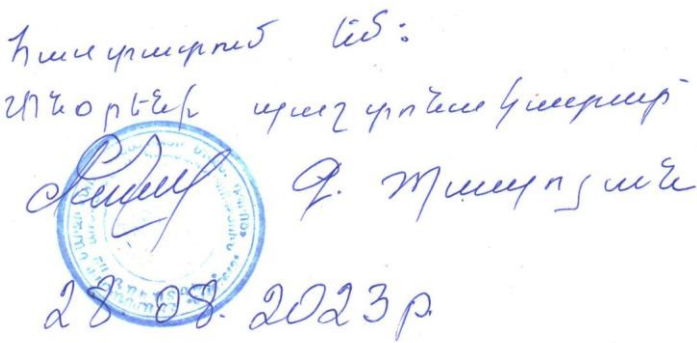 Հաստատում եմ:
Տնօրենի պաշտոնակատար
Գ. Պապոյան
28.08.2023թ.